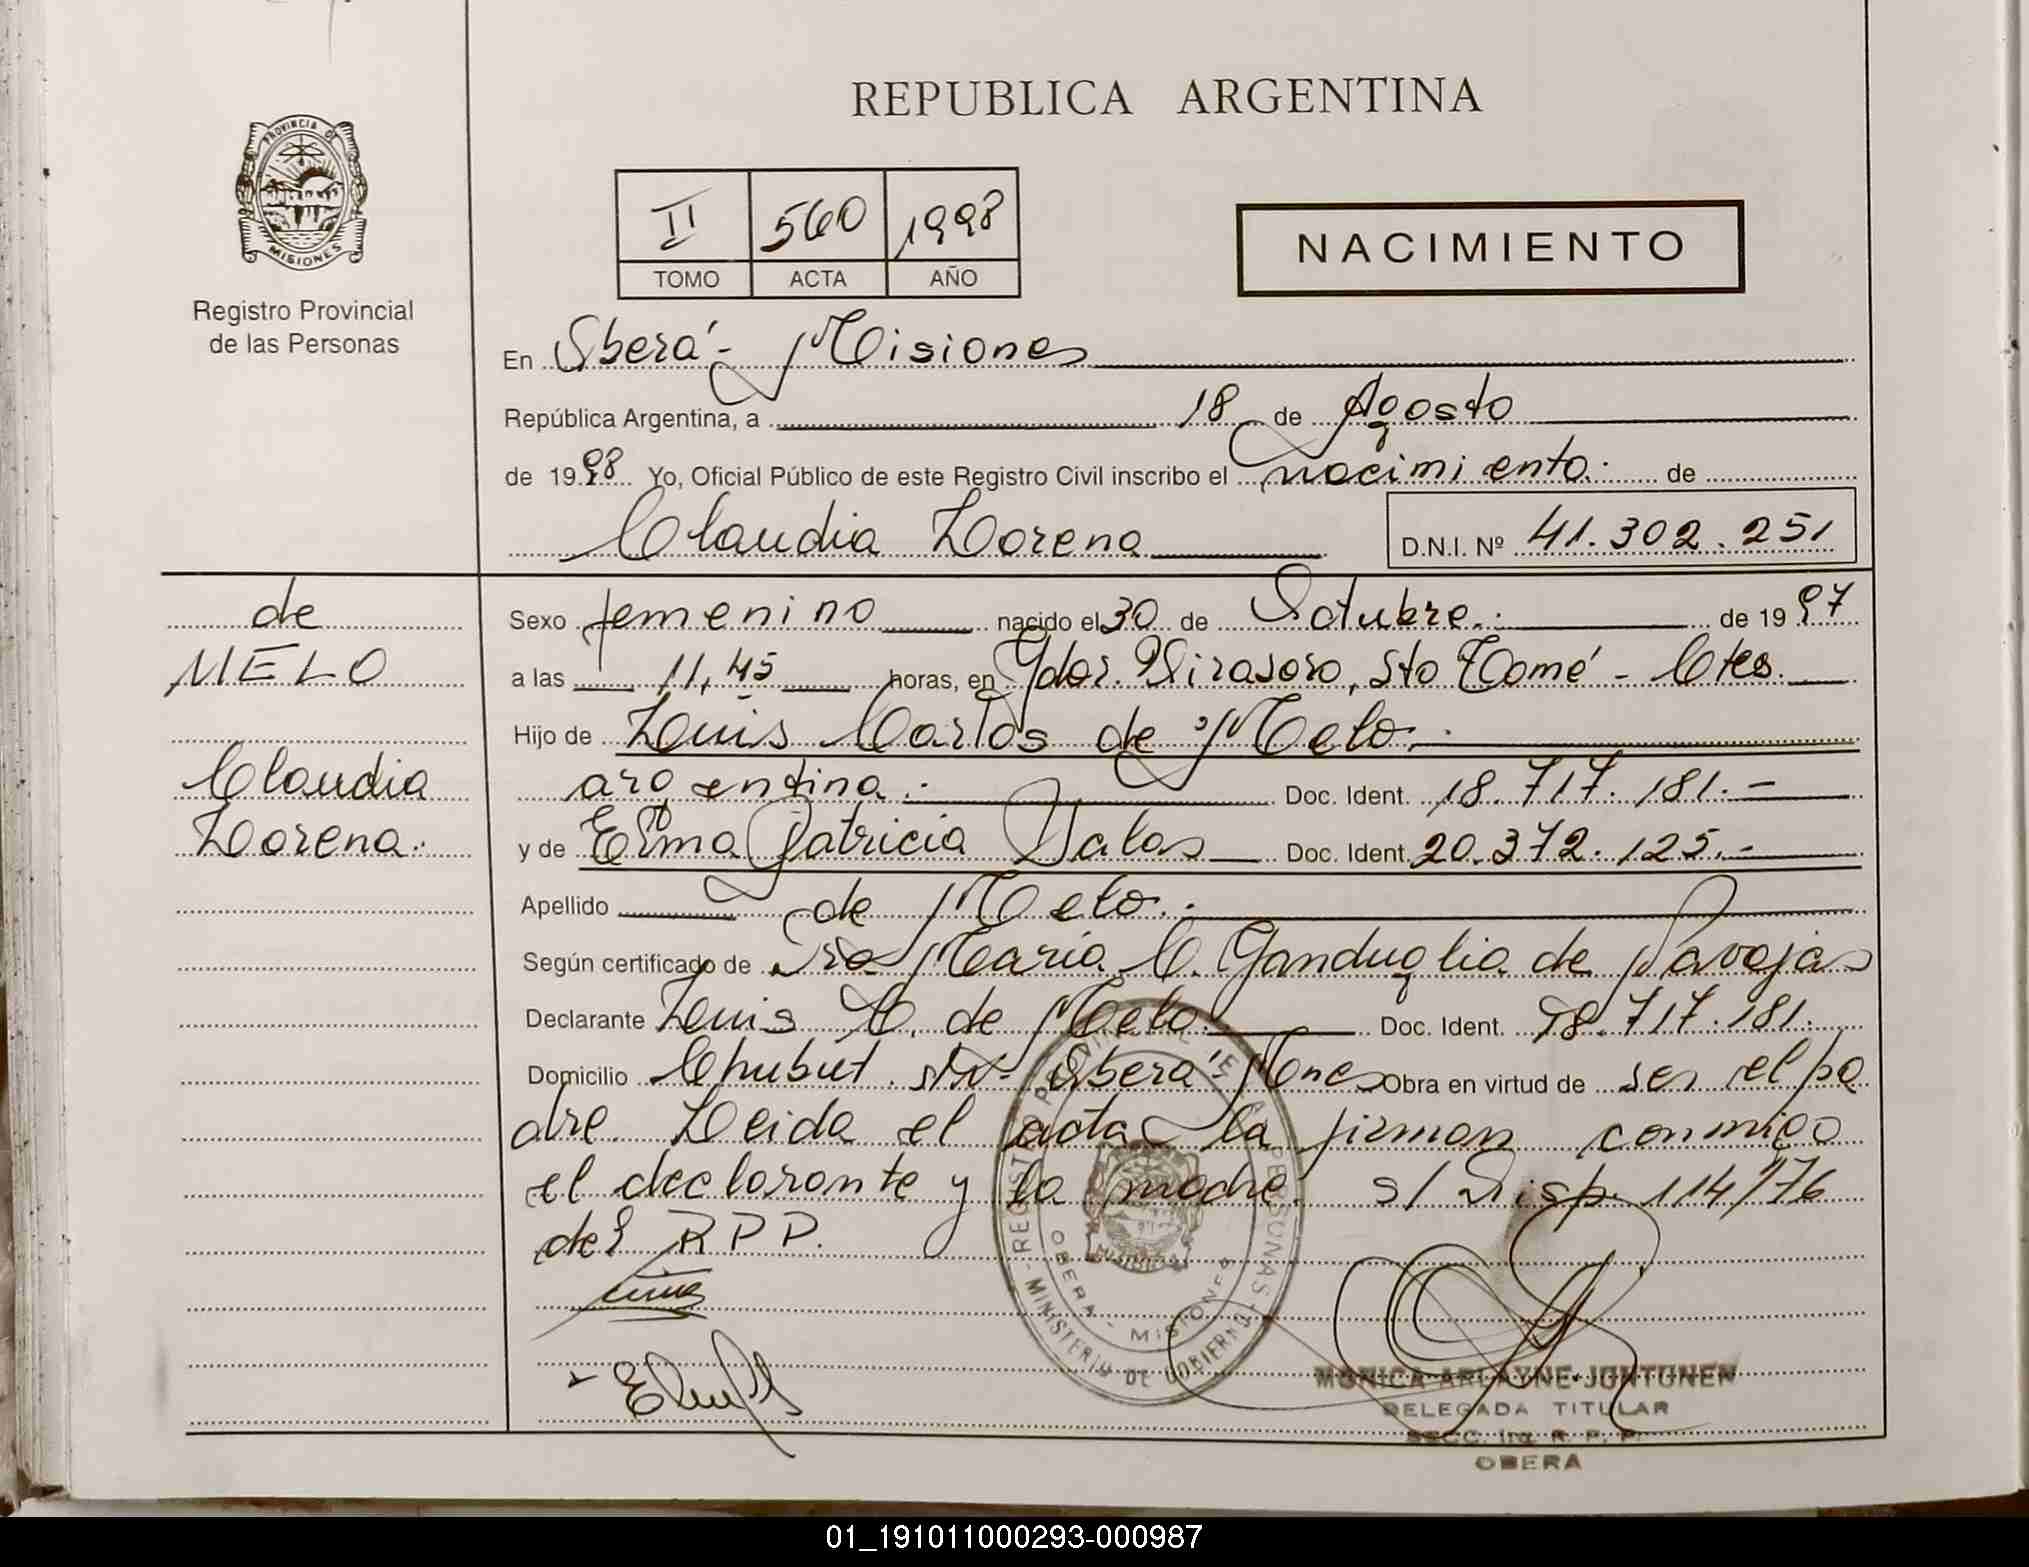 REPUBLICA ARGENTINA
PROVINCIA DE
MISIONES
Registro Provincial
de las Personas
II 560 1998
TOMO ACTA AÑO
NACIMIENTO
En Oberá - Misiones
República Argentina, a 18 de Agosto
de 1998 Yo, Oficial Público de este Registro Civil inscribo el nacimiento. de
Claudia Lorena D.N.I. Nº 41.302.251
de
MELO
Claudia
Lorena.
Sexo femenino nacido el 30 de Octubre. de 1997
a las 11,45 horas, en Gdor. Virasoro, Sto Tomé - Ctes.
Hijo de Luis Carlos de Melo.
argentina. Doc. Ident. 18.717.181.-
y de Elma Patricia Doc. Ident. 20.372.125.-
Apellido de Melo.
Según certificado de Dra María C. Ganduglia de
Declarante Luis C. de Melo. Doc. Ident. 18.717.181.
Domicilio Chubut s/nº Oberá Mnes Obra en virtud de ser el pa
dre. Leida el acta la firman conmigo
el declarante y la madre. s/ Disp. 114/76
del R P P.
REGISTRO PROVINCIAL DE LAS PERSONAS
MINISTERIO DE GOBIERNO
OBERA - MISIONES
MONICA ARLAYNE JONTUNEN
DELEGADA TITULAR
SECC. 1ra R. P. P.
OBERA
01_191011000293-000987